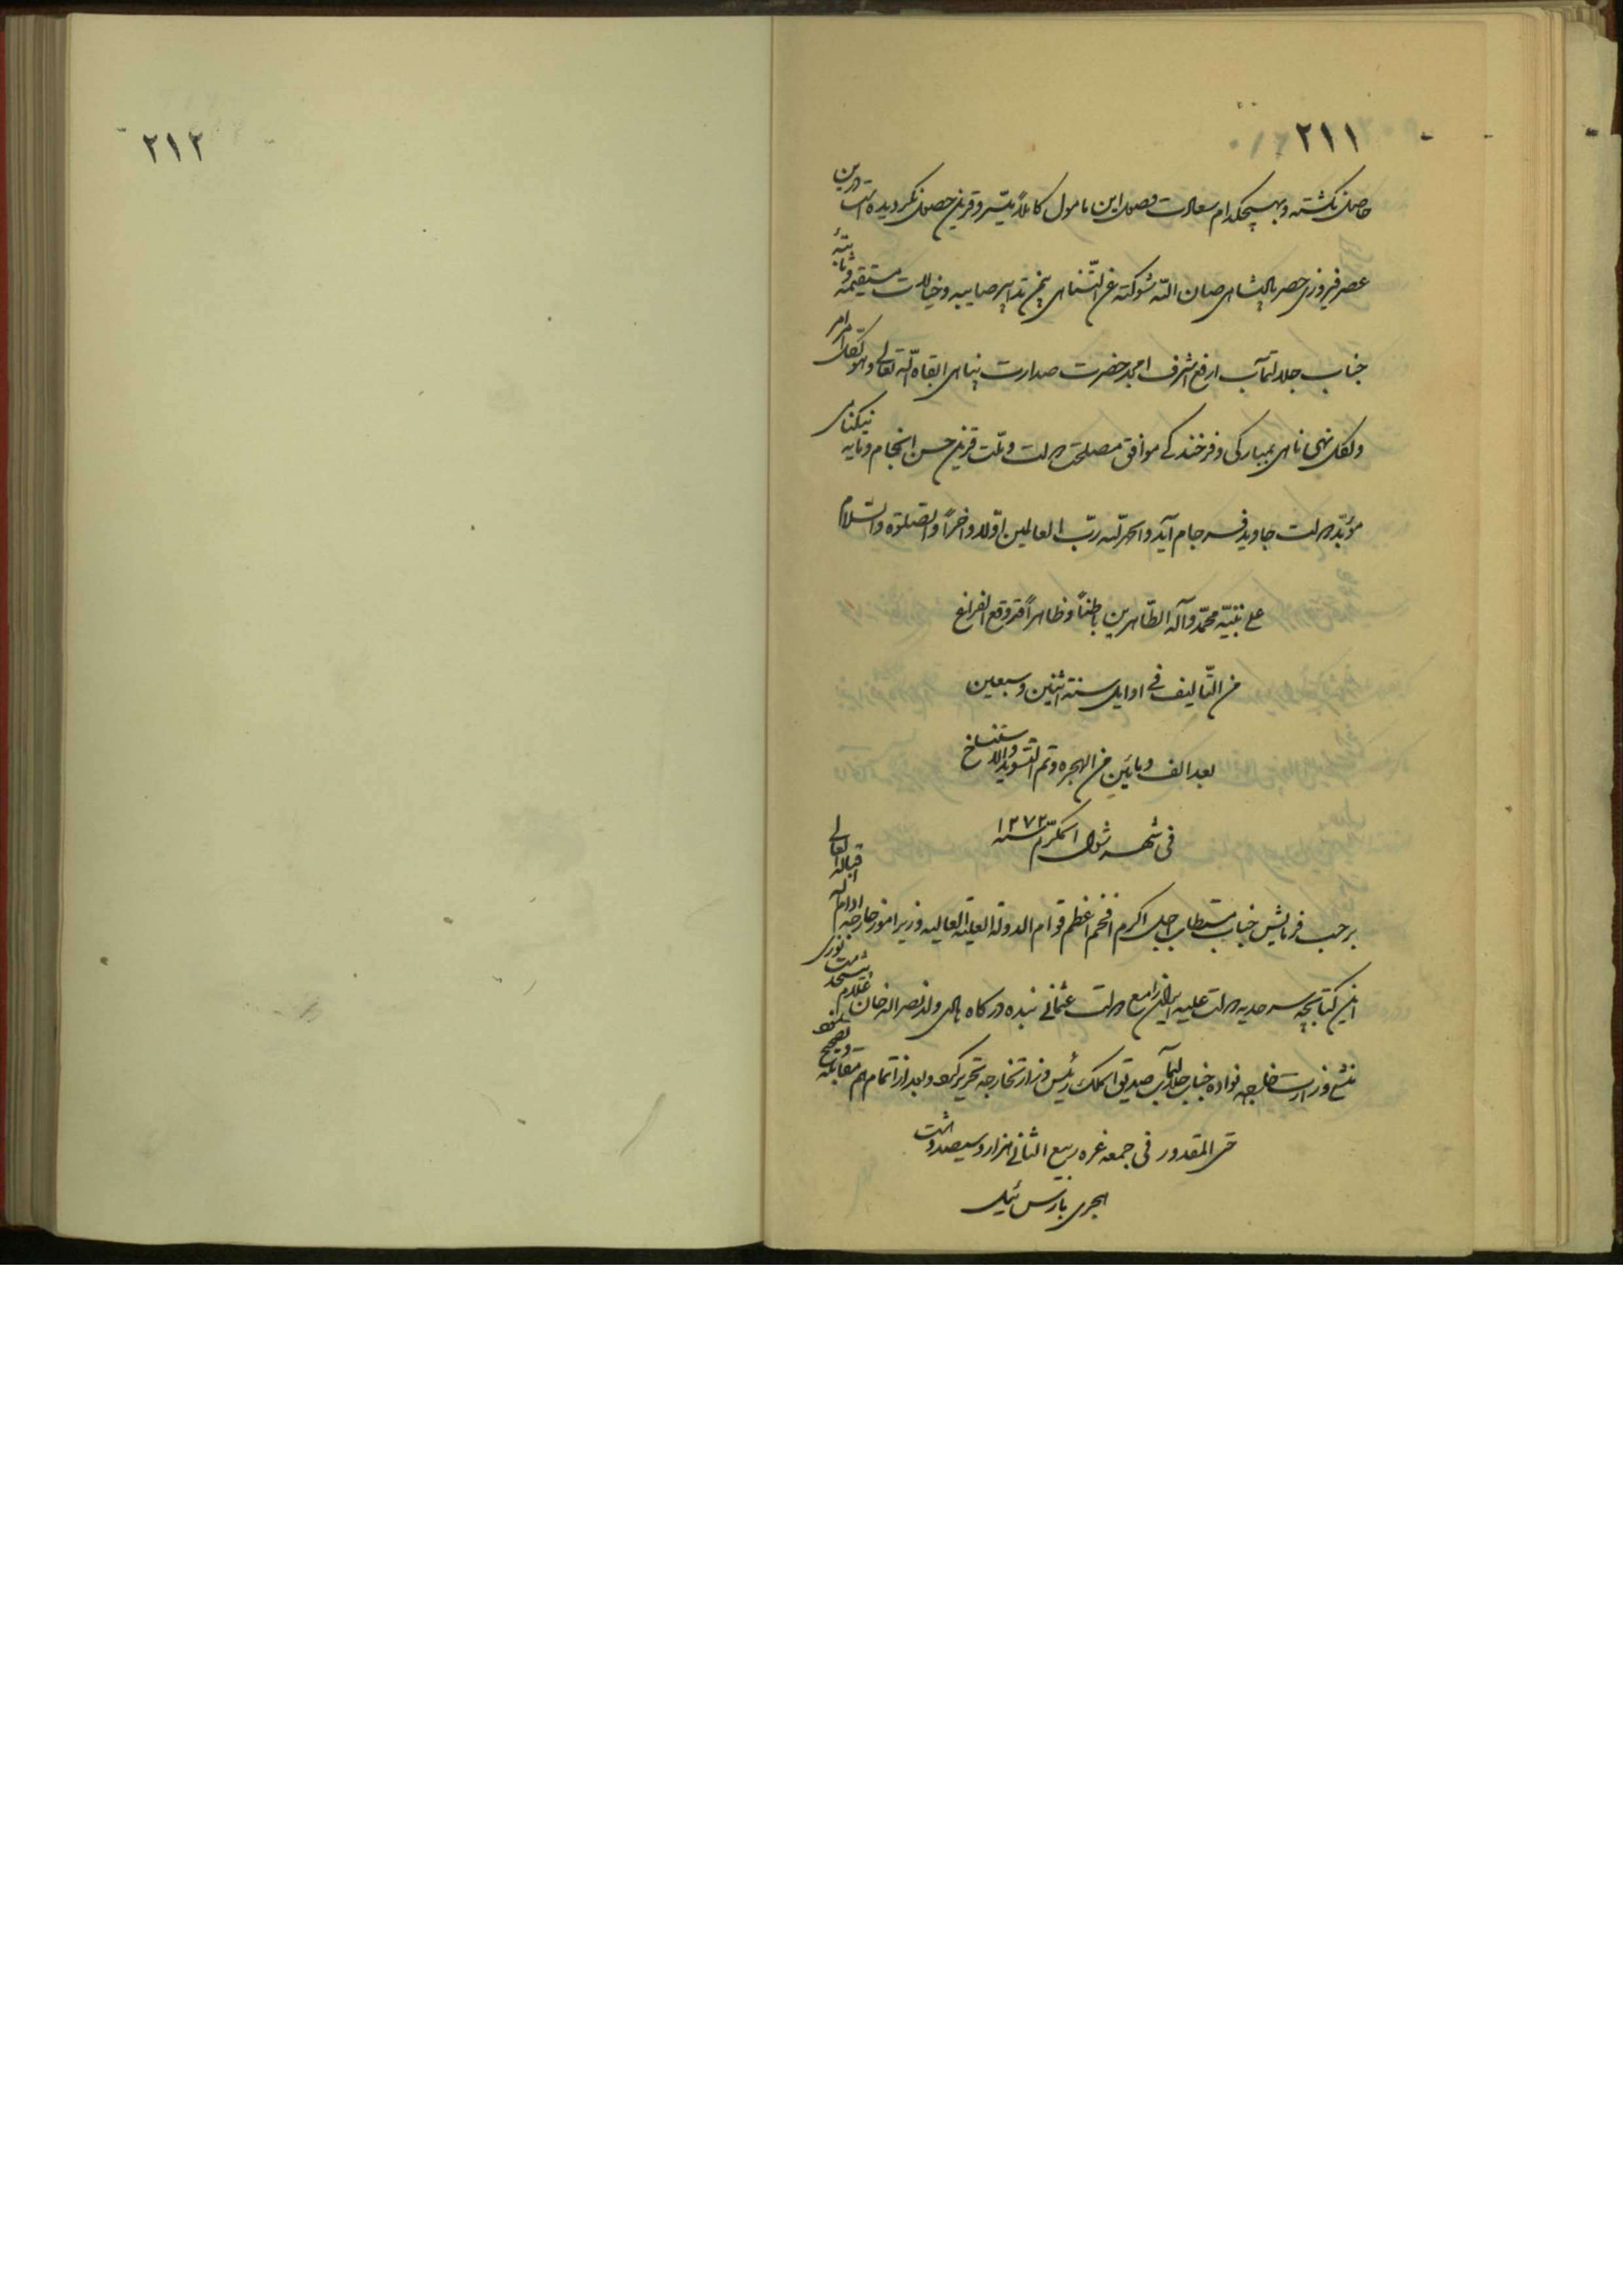 ٢١١
حاصل نگشته و بهیچکدام سعادت وصول این مأمول کاملاً میسّر و قرین حصول نگردیده است درین
عصر فیروزی حصر پادشاهی صان اللّه شوکته عن التّناهی بیمن تدابیر صایبه و خیالات مستقیمه و ثابتهٔ
جناب جلالتمآب ارفع اشرف امجد حضرت صدارت پناهی ابقاه اللّه تعالی و بتوکل امر
و لکل نهی نامی بمبارکی و فرخندگی موافق مصلحت دولت و ملّت قرین حسن انجام و مایه نیکنامی
مؤبّد دولت جاوید فرجام آید و الحمد للّه ربّ العالمین اوّلاً و اخراً و الصّلوة و السّلام
علی نبیّه محمّد و آله الطّاهرین باطناً و ظاهراً قد وقع الفراغ
من التّألیف فی اوایل سنة اثنین و سبعین
بعد الف و مأتین من الهجره و تم التسوید و الاستنساخ
فی شهر شوال المکرّم سنه ١٢٧٢
برحسب فرمایش جناب مستطاب اجل اکرم افخم اعظم قوام الدوله العلیة العالیه وزیر امور خارجه ادام اللّه اقباله العالی
این کتابچه سرحدیه دولت علیه ایران را مع دولت عثمانی بنده درگاه ولد نصراله خان غلام پیشخدمت نوری
منشی وزارت خارجه نواده جناب جلالتمآب صدیق الملک رئیس وزارتخارجه تحریر کرد و بعد از اتمام هم مقابله و تصحیح
حتی المقدور فی جمعه غره ربیع الثانی هزار و سیصد و هشت
هجری بارس ئیل
٢١٢